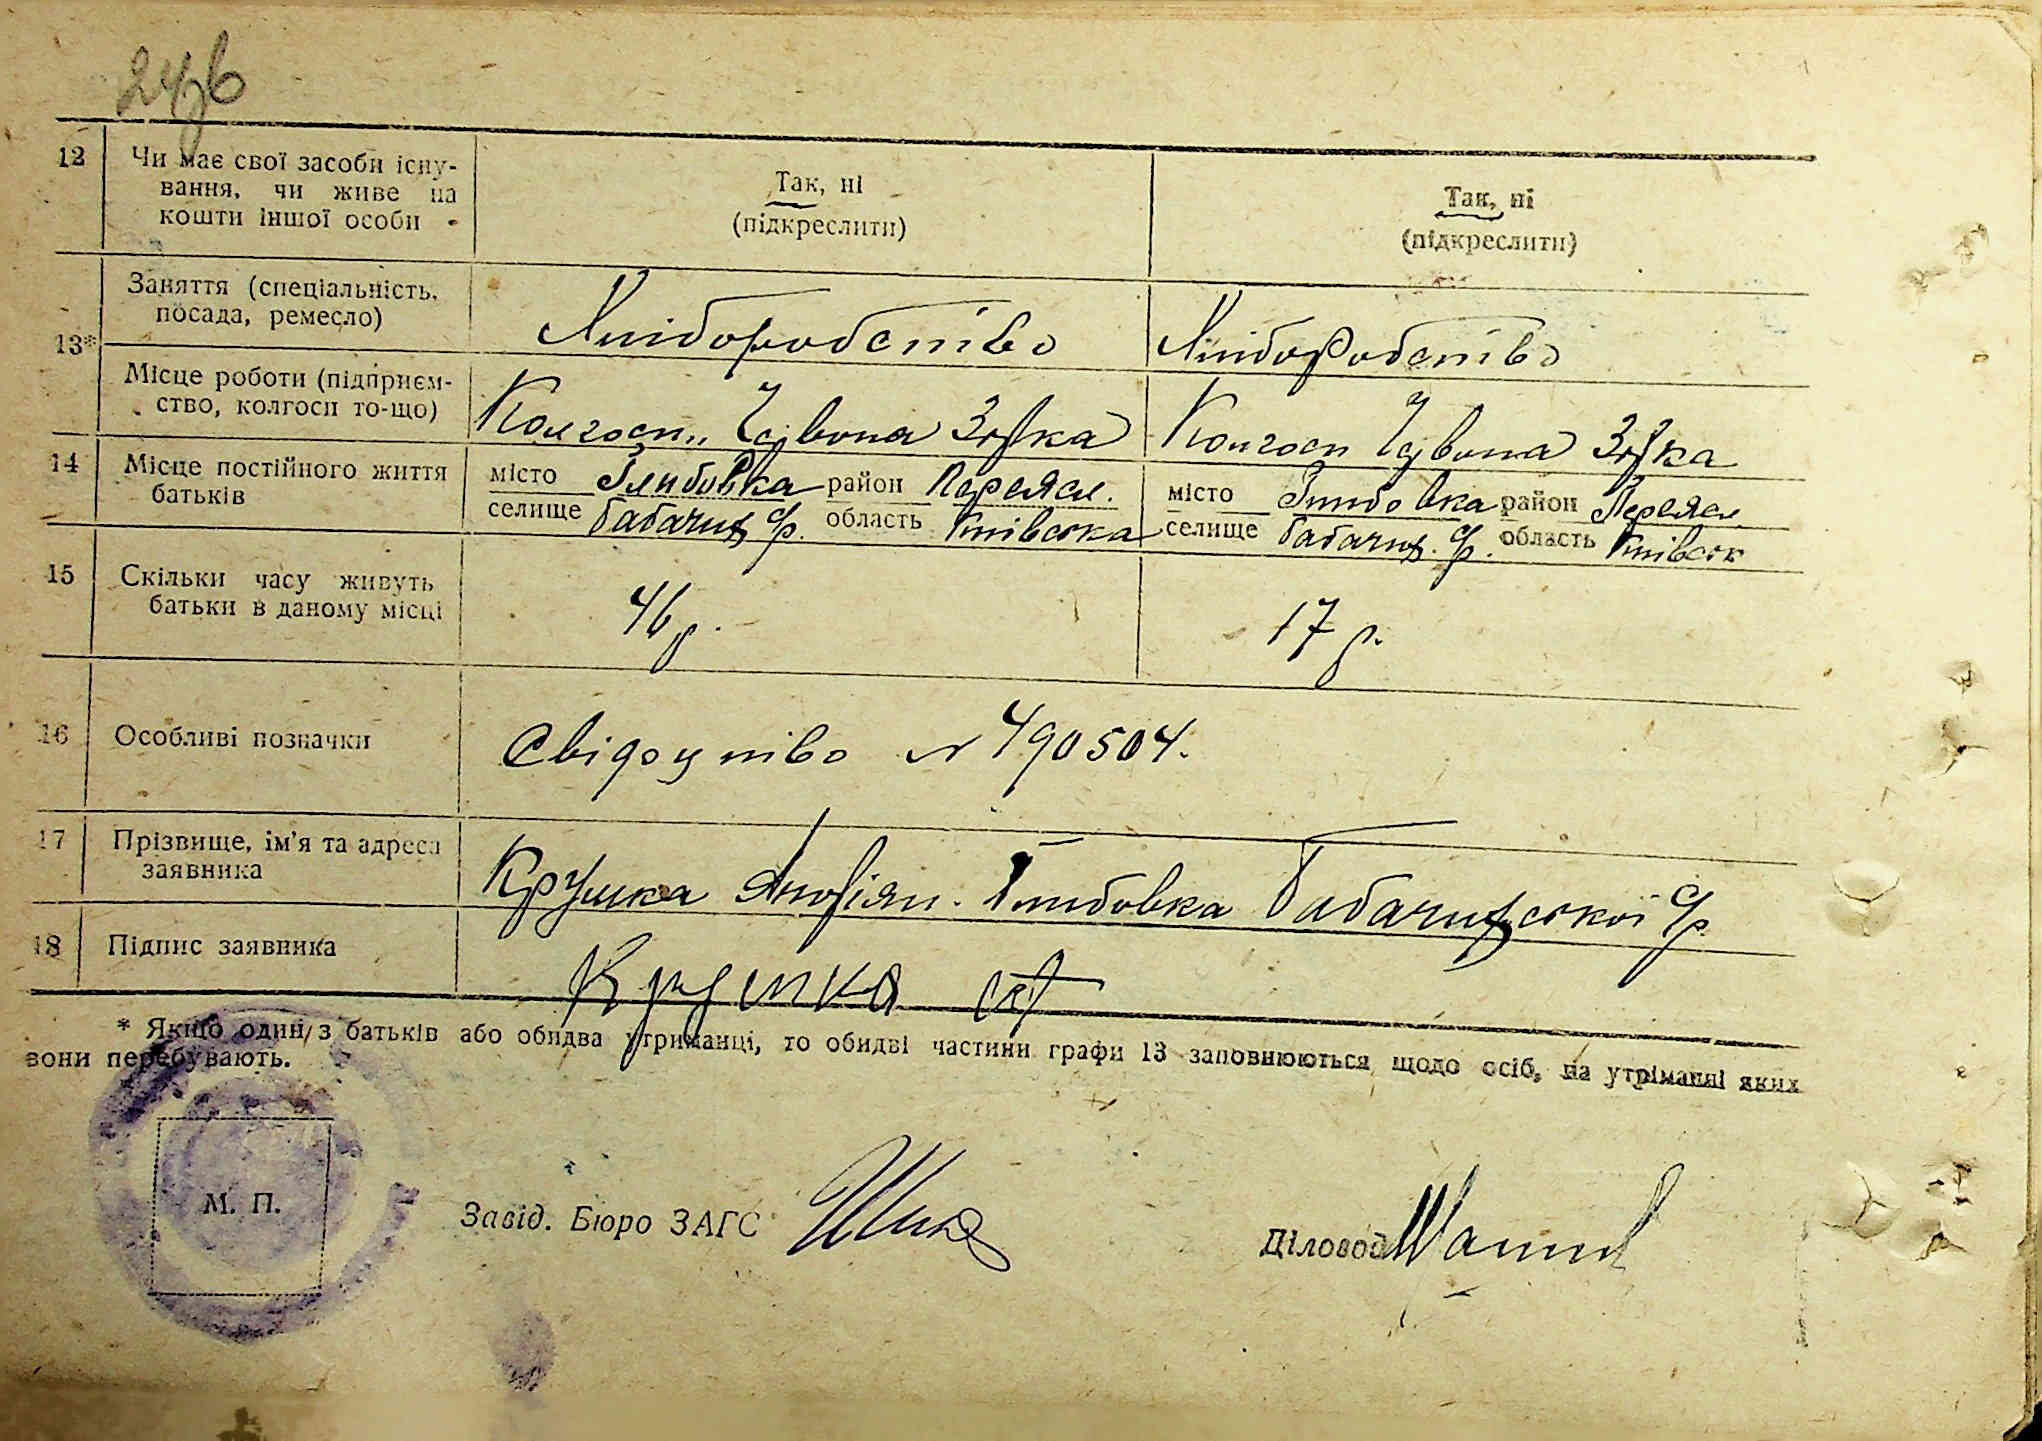 12 Чи має свої засоби існу-
вання, чи живе на
кошти іншої особи
Так, ні
(підкреслити)
Так, ні
(підкреслити)
13*
Заняття (спеціальність,
посада, ремесло)
Хліборобство
Хліборобство
Місце роботи (підприєм-
ство, колгосп то-що)
Колгосп „Червона Зірка
Колгосп Червона Зірка
14 Місце постійного життя
батьків
місто Глибовка район Переясл.
селище область Київська
місто Глибовка район Переясл.
селище область Київськ
15 Скільки часу живуть
батьки в даному місці
46 р.
17 р.
16 Особливі позначки
Свідоцтво № 490504.
17 Прізвище, ім'я та адреса
заявника
Крушка Глибовка
18 Підпис заявника
Крушка
* Якщо один з батьків або обидва утриманці, то обидві частини графи 13 заповнюються щодо осіб, на утриманні яких
вони перебувають.
М. П.
Завід. Бюро ЗАГС
Діловод